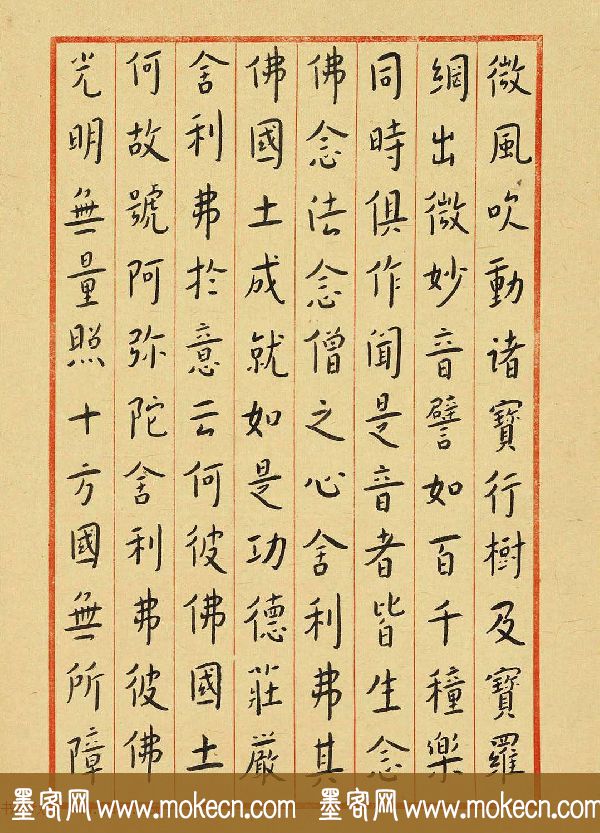 微風吹動諸寶行樹及寶羅
網出微妙音譬如百千種樂
同時俱作聞是音者皆生念
佛念法念僧之心舍利弗其
佛國土成就如是功德莊嚴
舍利弗於意云何彼佛國土
何故號阿弥陀舍利弗彼佛
光明無量照十方國無所障
墨客网 www.mokecn.com 墨客网 www.mokecn.com